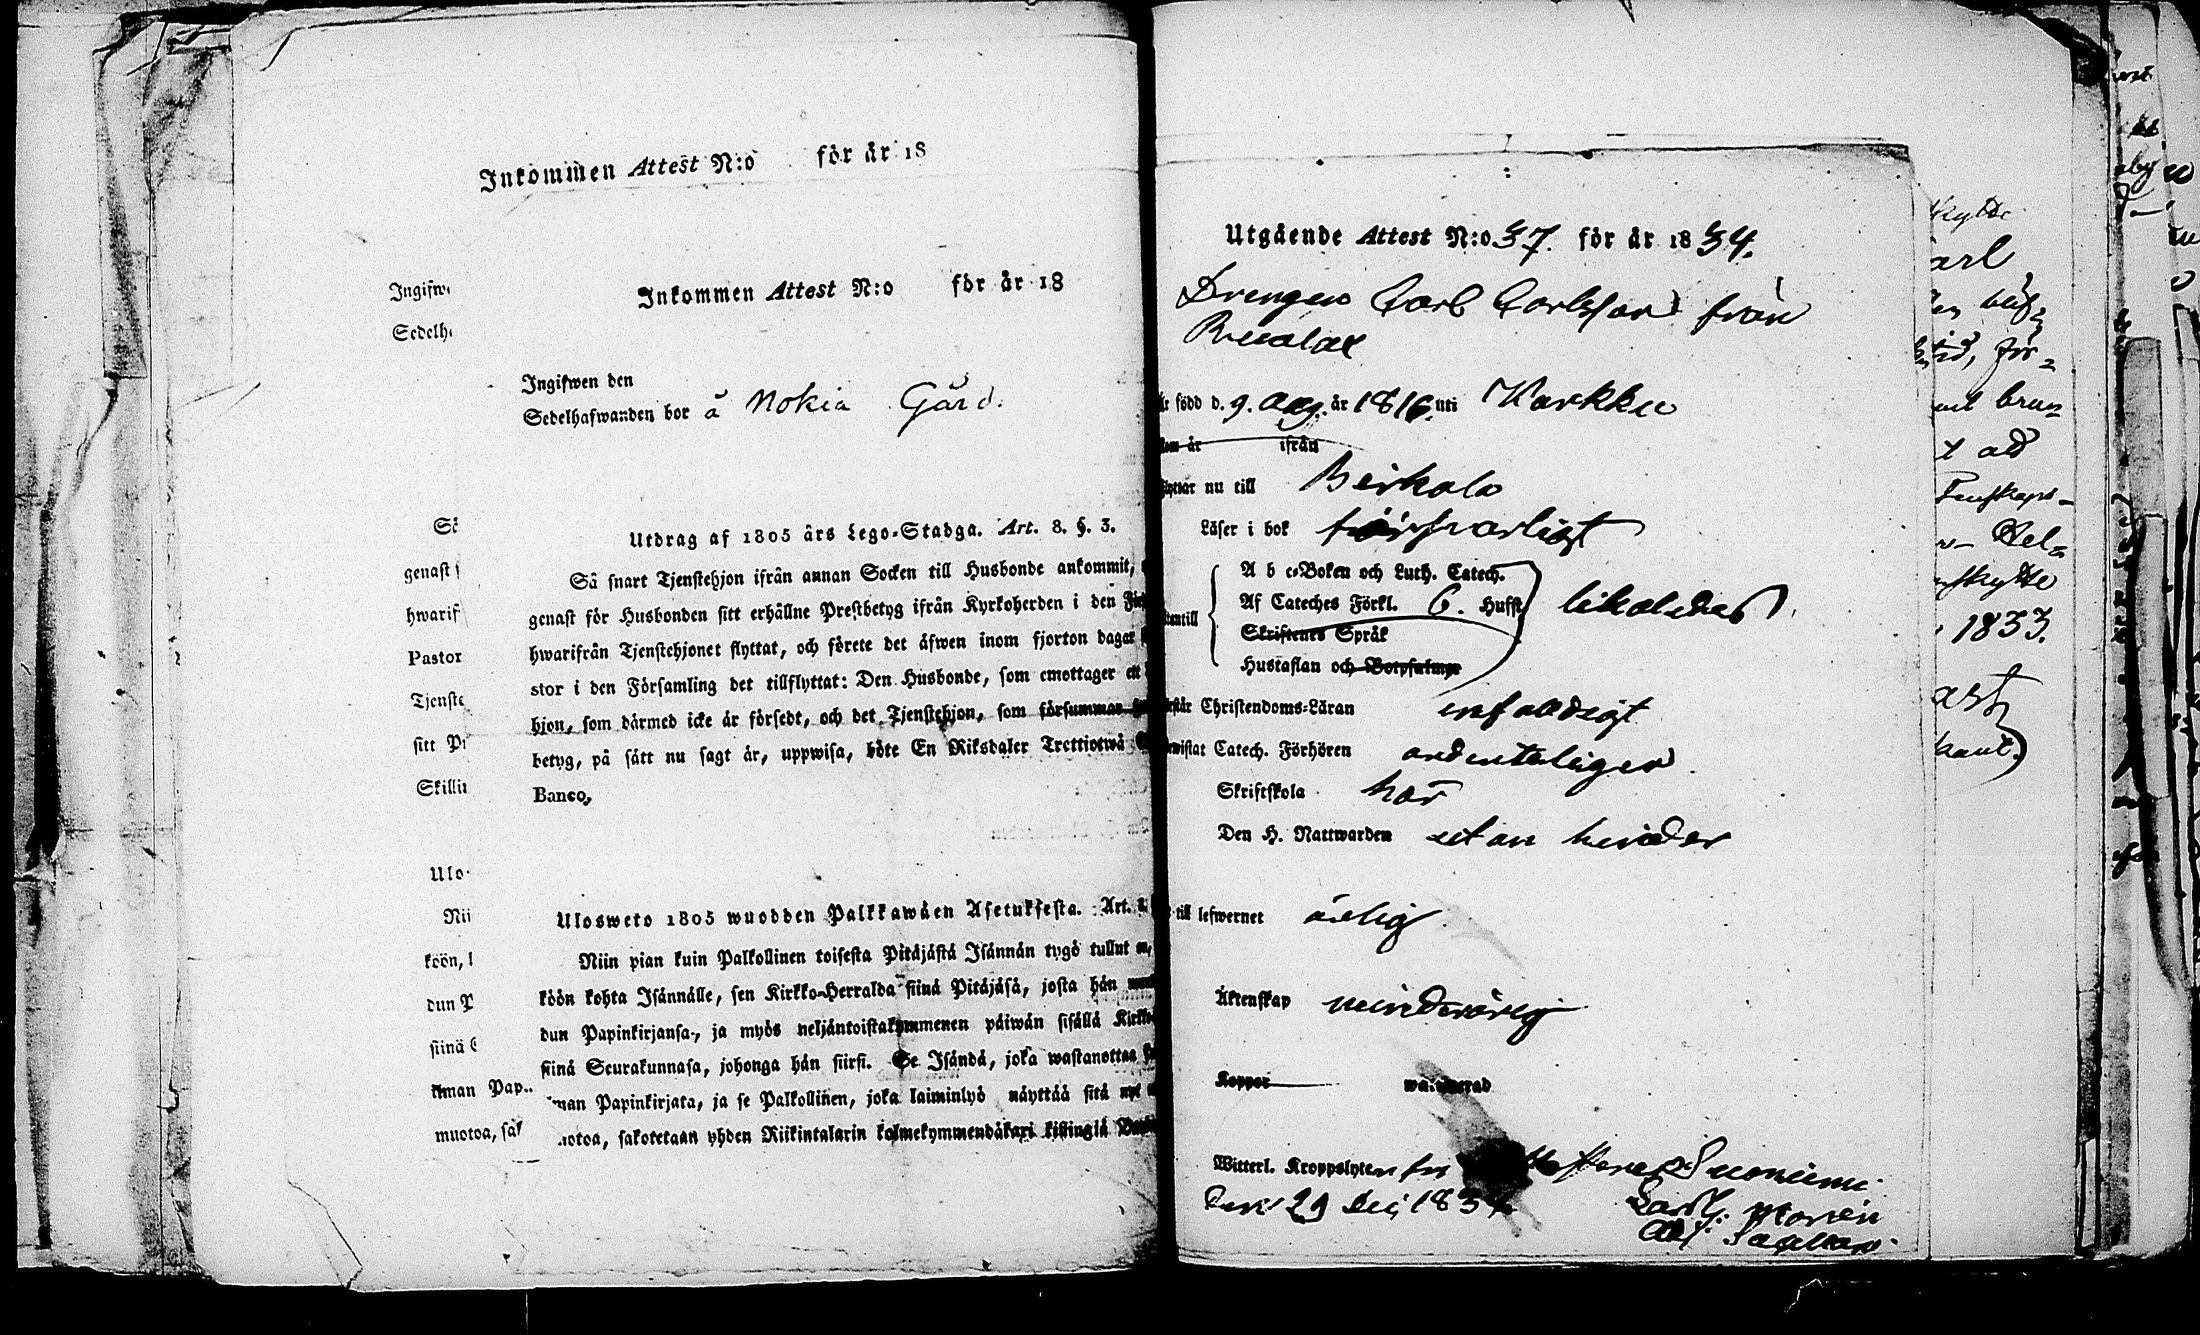 Inkommen Attest N:o för år 18
Inkommen Attest N:o för år 18
Ingifwen den
Sedelhafwanden bor å Nokia Gård.
Utdrag af 1805 års Lego-Stadga. Art. 8. §. 3.
Så snart Tjenstehjon ifrån annan Socken till Husbonde ankommit,
genast för Husbonden sitt erhållne Prestbetyg ifrån Kyrkoherden i den
hwarifrån Tjenstehjonet flyttat, och förete det äfwen inom fjorton dagar
stor i den Församling det tillflyttat: Den Husbonde, som emottager ett
hjon, som därmed icke är försedt, och det Tjenstehjon, som försummar
betyg, på sätt nu sagt är, uppwisa, böte En Riksdaler Trettiotwå
Banco.
Ulosweto 1805 wuodden Palkkawäen Asetuksesta. Art. 8.
Niin pian kuin Palkollinen toisesta Pitäjästä Isännän tygö tullut on,
köön kohta Isännälle, sen Kirkko-Herralda siinä Pitäjäsä, josta hän
dun Papinkirjansa, ja myös neljäntoistakymmenen päiwän sisällä
siinä Seurakunnasa, johonga hän siirsi. Se Isändä, joka wastanottaa
ilman Papinkirjata, ja se Palkollinen, joka laiminlyö näyttää sitä nyt
muotoa, sakotetaan yhden Riikintalarin kolmekymmendäkaxi killingiä
Ingifw
Sedelh
genast
hwarif
Pastor
Tjenste
sitt Pr
Skillin
Ulo
Nii
köön,
dun P
siinä
ilman Pap
muotoa, sak
Utgående Attest N:o 37. för år 1834.
Drengen Carl Carlsson från
född d. 9. Aug. år 1816. uti Karkku
ifrån
flyttar nu till Birkala
Läser i bok försvarligt
A b c-Boken och Luth. Catech.
Af Cateches Förkl. 6. Hufst. likaledes
Skriftenes Språk
Hustaflan och Botpsalmer
Christendoms-Läran enfaldigt
Catech. Förhören ordenteligen
Skriftskola här
Den H. Nattwarden utan hinder
till lefwernet ärlig
Äktenskap minderårig
Koppor waccinerad
Witterl. Kroppslyten Suoniemi
den 29 Dec 1834
1833.